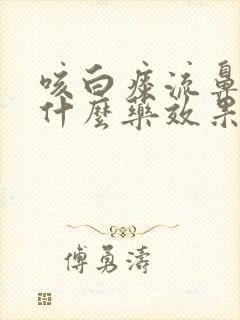 咳白痰流鼻
什麼藥效果
傅勇濤